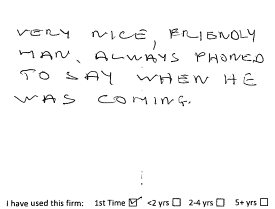 VERY NICE, FRIENDLY
MAN, ALWAYS PHONED
TO SAY WHEN HE
WAS COMING.
I have used this firm: 1st Time ☑ <2 yrs ☐ 2-4 yrs ☐ 5+ yrs ☐